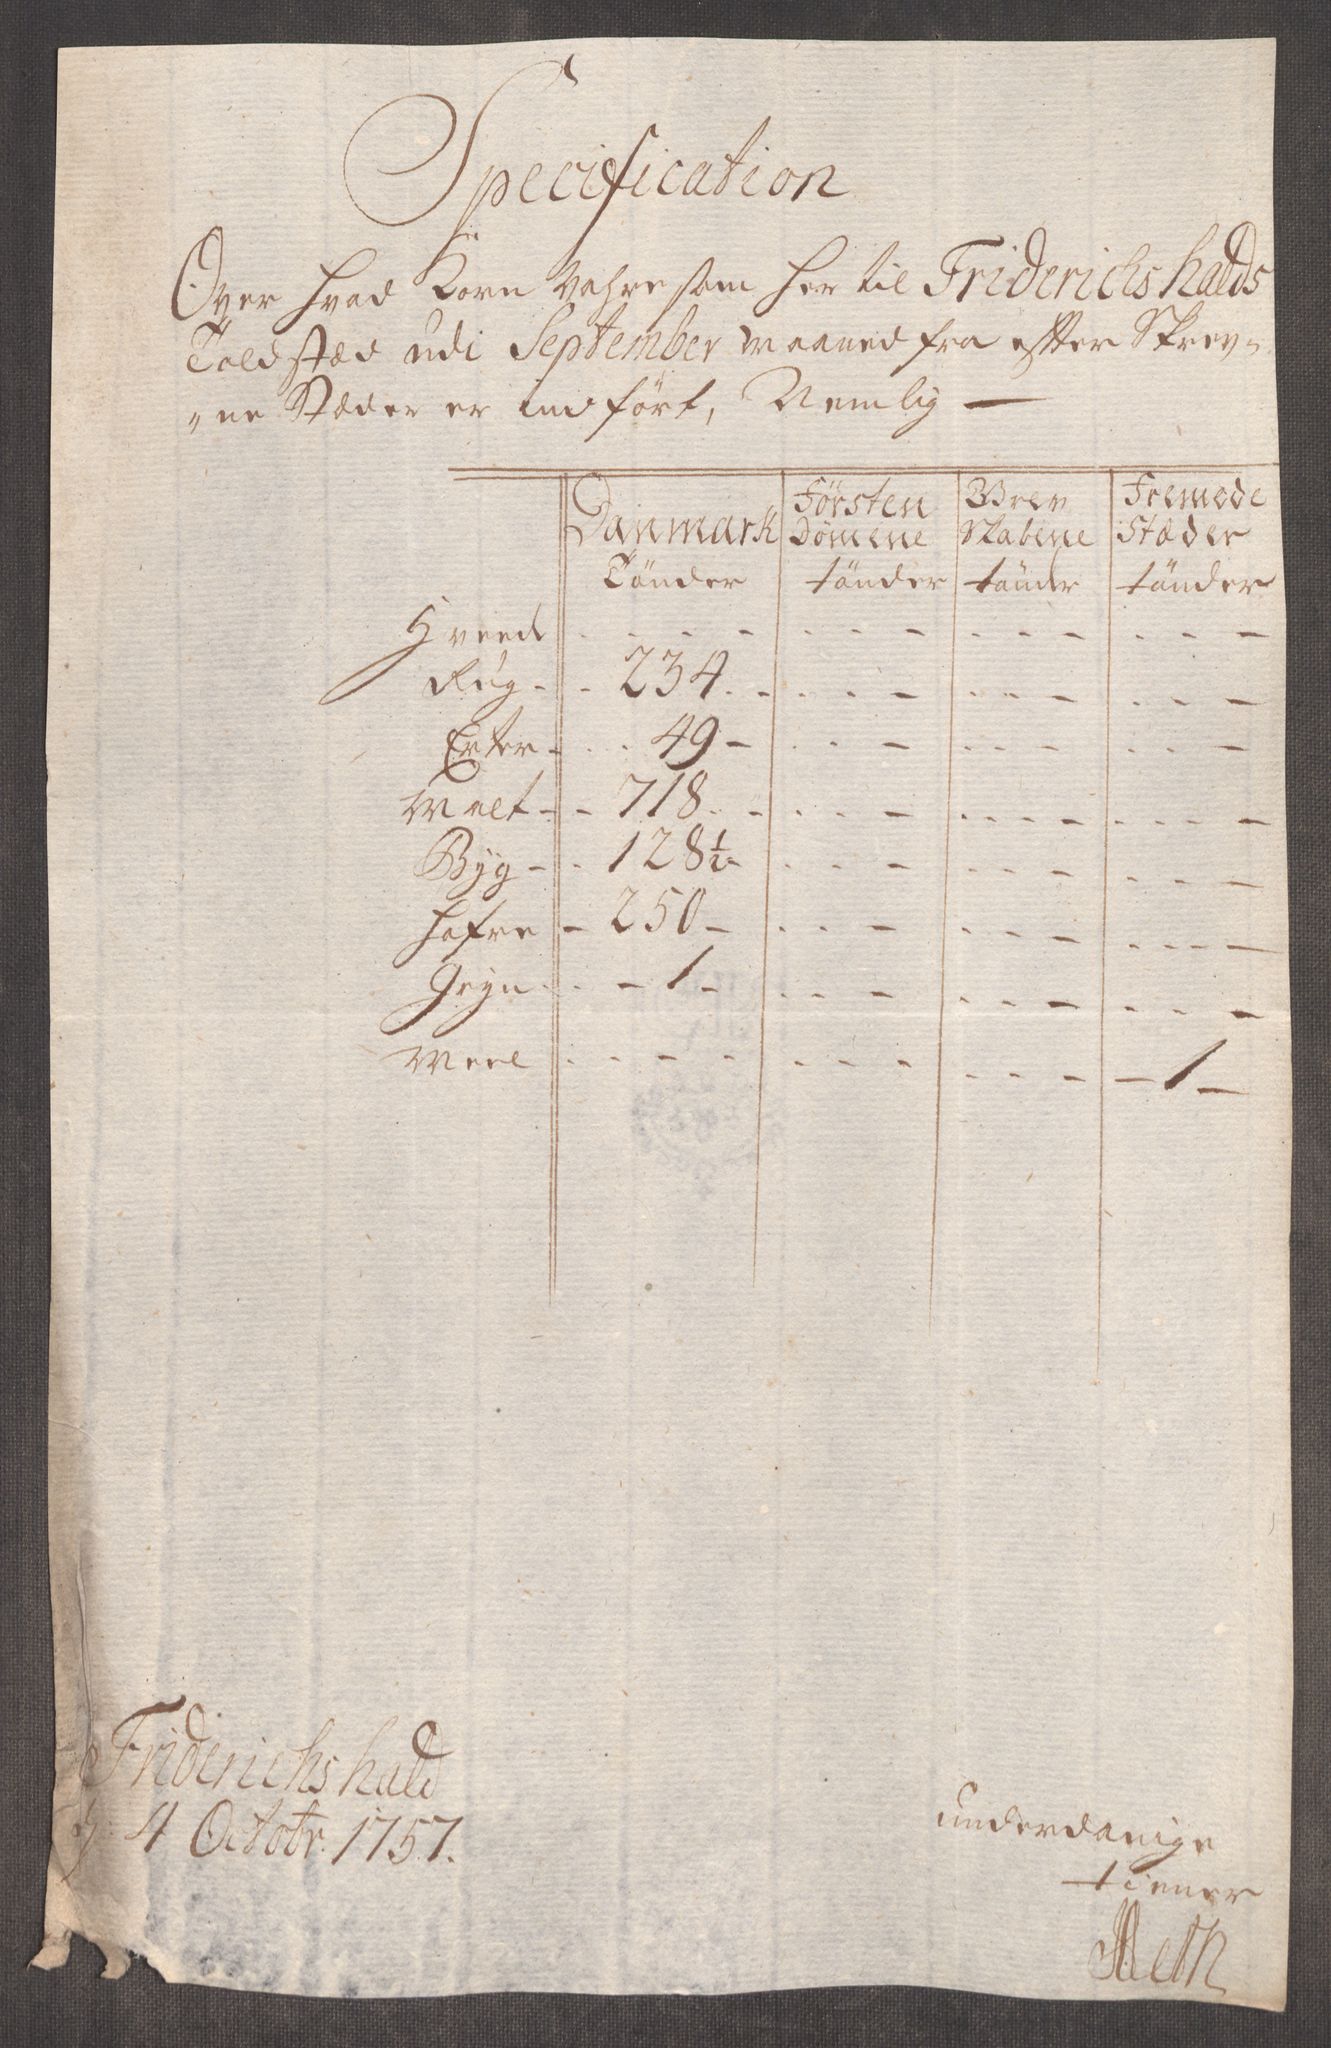 Specification
Over hvad Korn Vahre som her til Friderichshalds
Told stæd udi September maaned fra efter Skrev=
=ne Stæder er indført, Nemlig —
Danmark Tönder | Førsten Dömene tönder | Grev Skabene tönder | Fremede Stæder tönder
Hveed . . . - | . . - | - - - | . . -
Rug - . 234 . . - | . . - | - - - | . . -
Erter - . . 49 - | . . - | - - - | . . -
Malt - - 718 . . - | . . - | . . . - | . . . -
Byg - . 128½ - | . . - | - - - | . . -
Hafre - 250 - | . . - | - - - | . . . -
Gryn . . - 1 - | . . - | - - - | . . -
Meel . . - - - | . . - | . . - | - 1 -
Friderichshald
d 4 Octobr. 1757.
underdanige
tiener